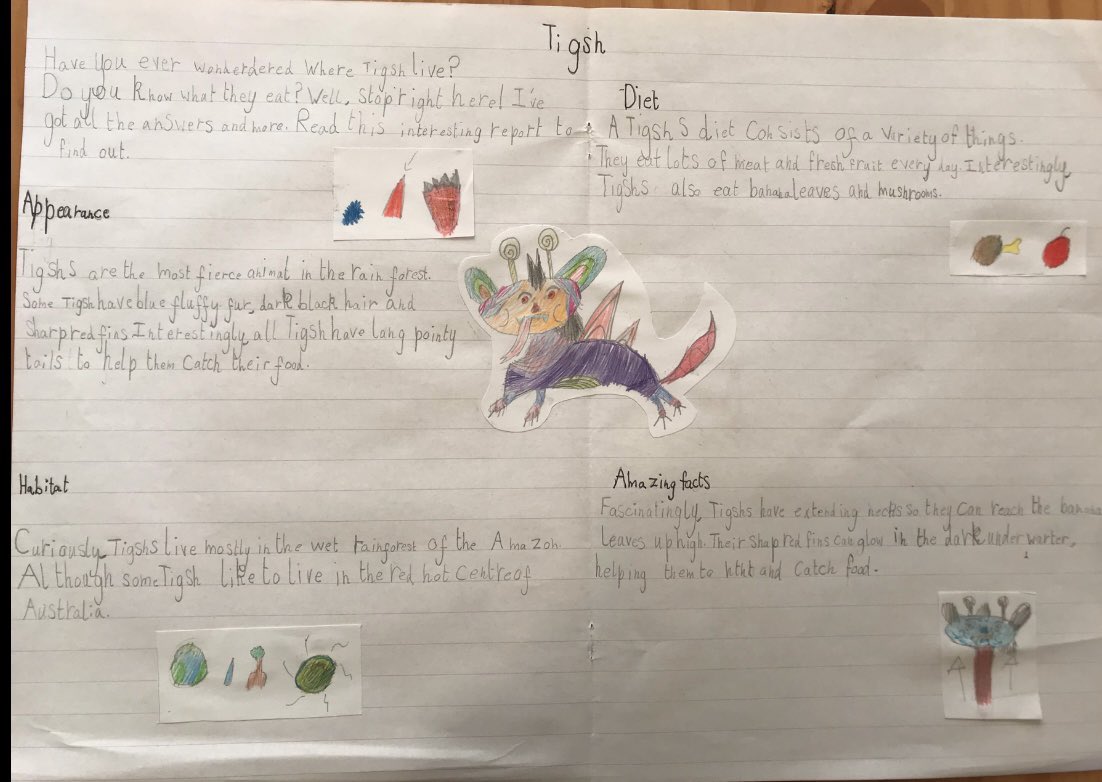 Tigsh
Have you ever wonderdered where Tigsh live?
Do you know what they eat? Well, stop right here! I've
got all the answers and more. Read this interesting report to
find out.
Appearance
Tigshs are the most fierce animal in the rain forest.
Some Tigsh have blue fluffy fur, dark black hair and
sharp red fins. Interestingly all Tigsh have long pointy
tails to help them catch their food.
Habitat
Curiously, Tigshs live mostly in the wet rainforest of the Amazon.
Although some Tigsh like to live in the red hot centre of
Australia.
Diet
A Tigsh s diet consists of a variety of things.
They eat lots of meat and fresh fruit every day. Interestingly,
Tigshs also eat banana leaves and mushrooms.
Amazing facts
Fascinatingly, Tigshs have extending necks so they can reach the banana
leaves up high. Their shap red fins can glow in the dark under warter,
helping them to and catch food.